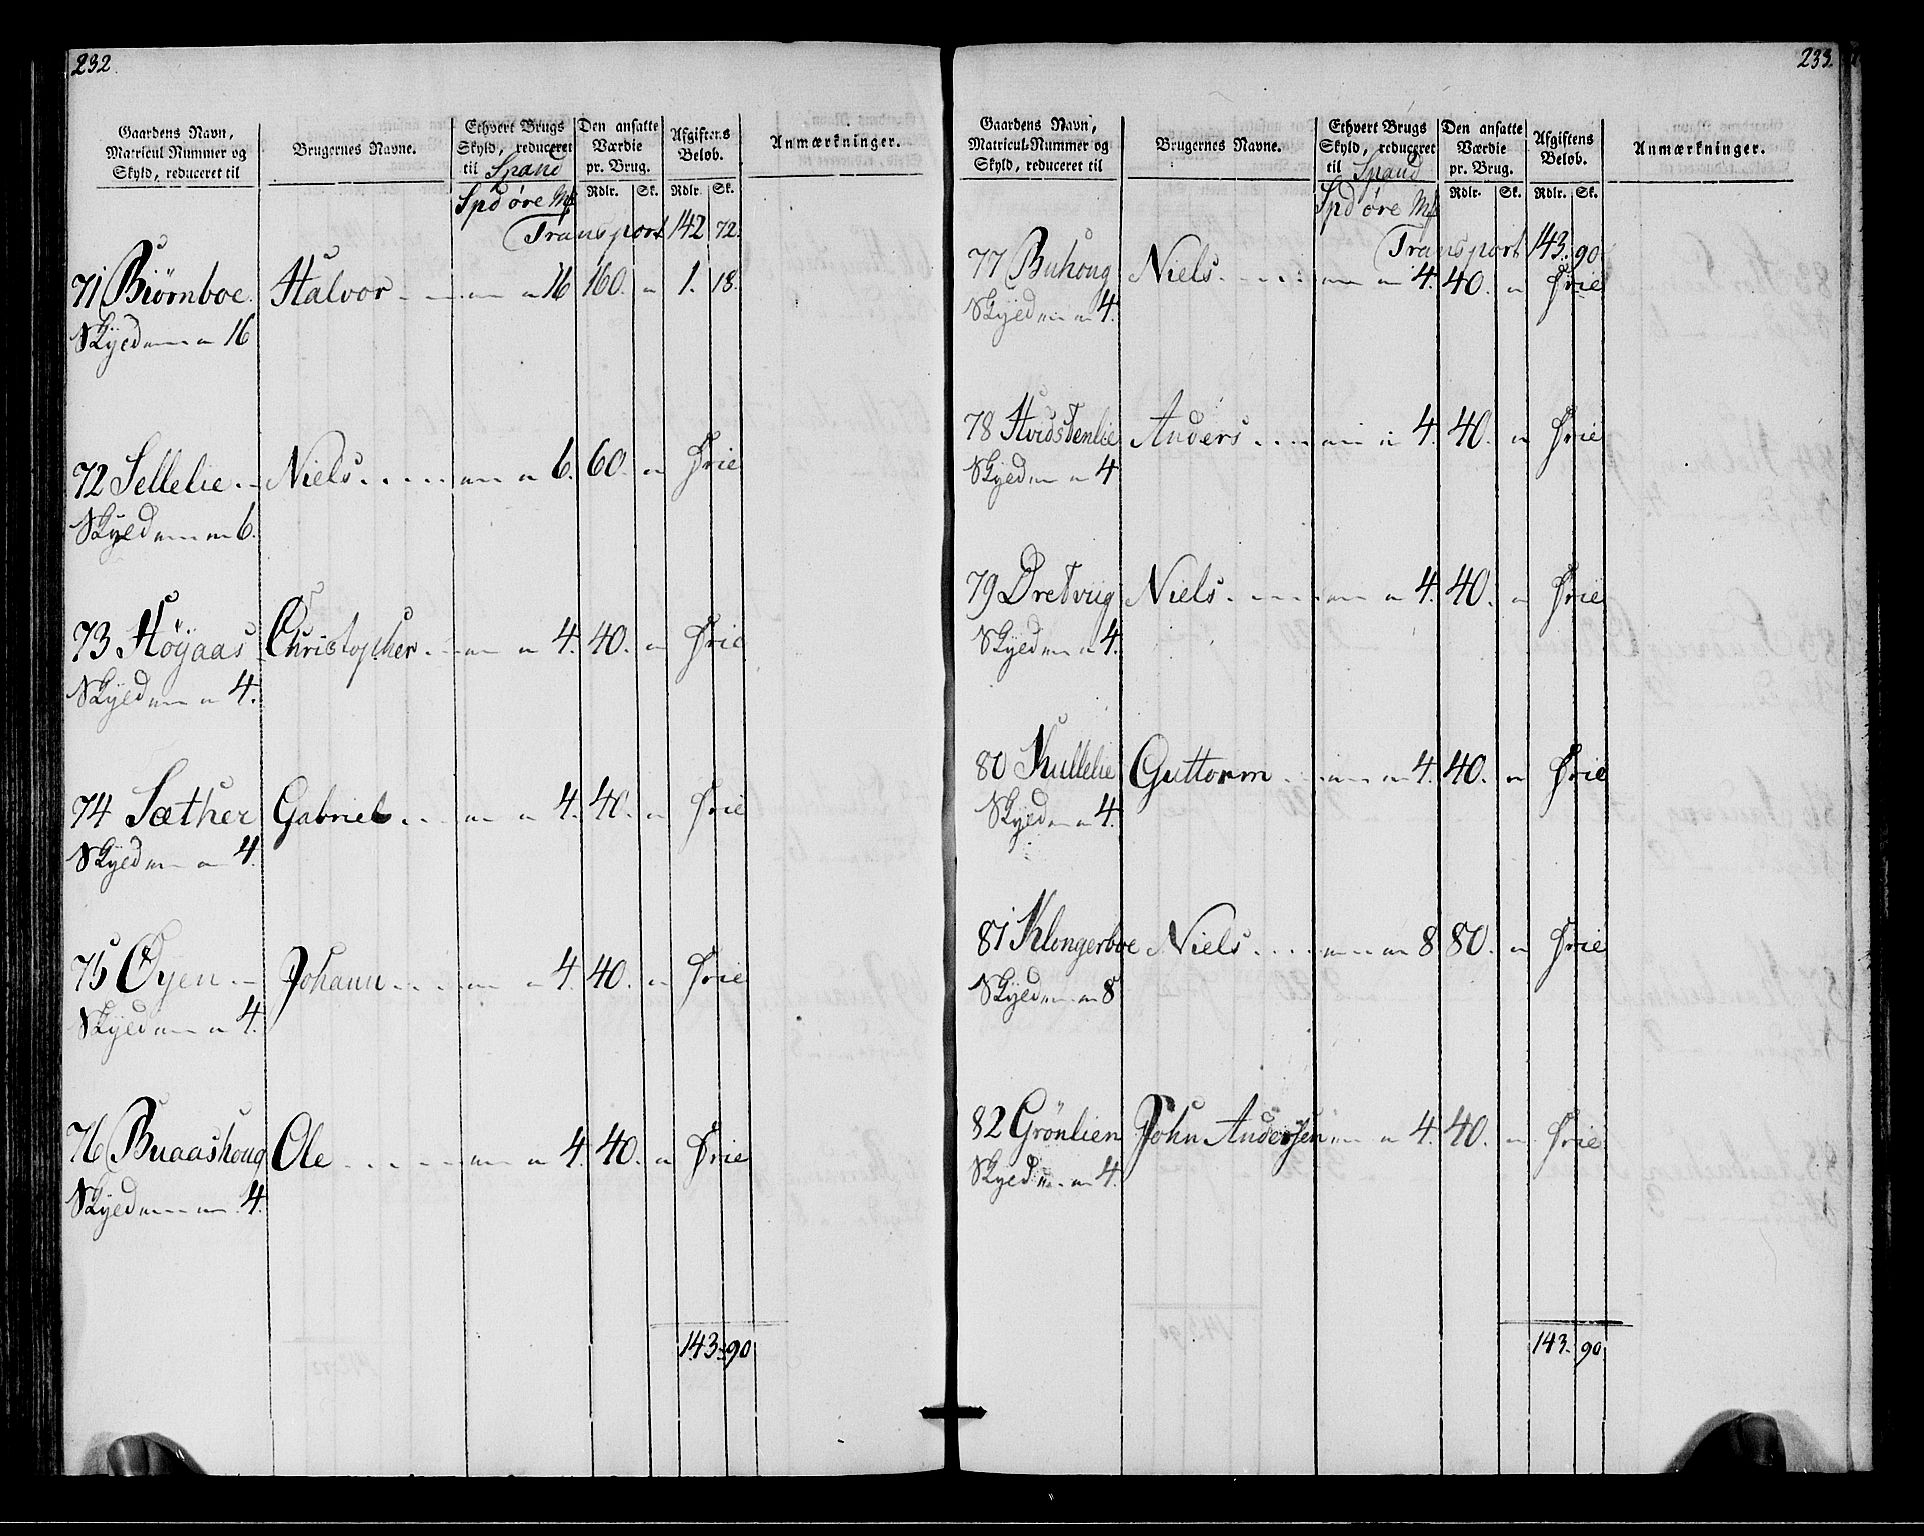 232.
Gaardens Navn, Matricul Nummer og Skyld, reduceret til
Brugernes Navne.
Ethvert Brugs Skyld, reduceret til Spand
Den ansatte Værdie pr. Brug.
Afgiftens Beløb.
Anmærkninger.
Spd øre Mk Rdlr. Sk. Rdlr. Sk.
Transport 142 72.
71 Biörnboe. Halvor 16 160. 1. 18.
Skyed 16
72 Sellelie Niels 6. 60. Frie
Skyed 6.
73 Höÿaas Christopher 4. 40. Frie
Skyed 4.
74 Sæther Gabriel 4. 40. Frie
Skyed 4.
75 Øyen Johann 4. 40. Frie
Skyed 4.
76 Buaashoug Ole 4. 40. Frie
Skyed 4.
143 90
233.
Gaardens Navn, Matricul-Nummer og Skyld, reduceret til
Brugernes Navne.
Ethvert Brugs Skyld, reduceret til Spand
Den ansatte Værdie pr. Brug.
Afgiftens Beløb.
Anmærkninger.
Spd øre Mk Rdlr. Sk. Rdlr. Sk.
Transport 143. 90
77 Buhoug Niels 4. 40. Frie
Skyed 4.
78 Hvidstenlie Anders 4. 40. Frie
Skyed 4
79 Dretviig Niels 4. 40. Frie
Skyed 4.
80 Kullelie Guttorm 4. 40. Frie
Skyed 4.
81 Klongerboe Niels 8 80. Frie
Skyed 8
82 Grönlien John Andersen 4. 40. Frie
Skyed 4.
143. 90